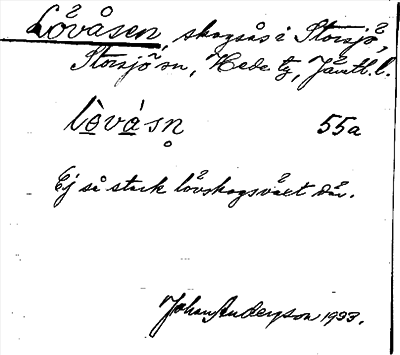 Lövåsen, skogsås i Storsjö,
Storsjö sn, Hede tg, Jämtl. l.
lò̱vá̱sn̥ 55a
Ej så stark lövskogsväxt där.
Johan Anderson 1933.